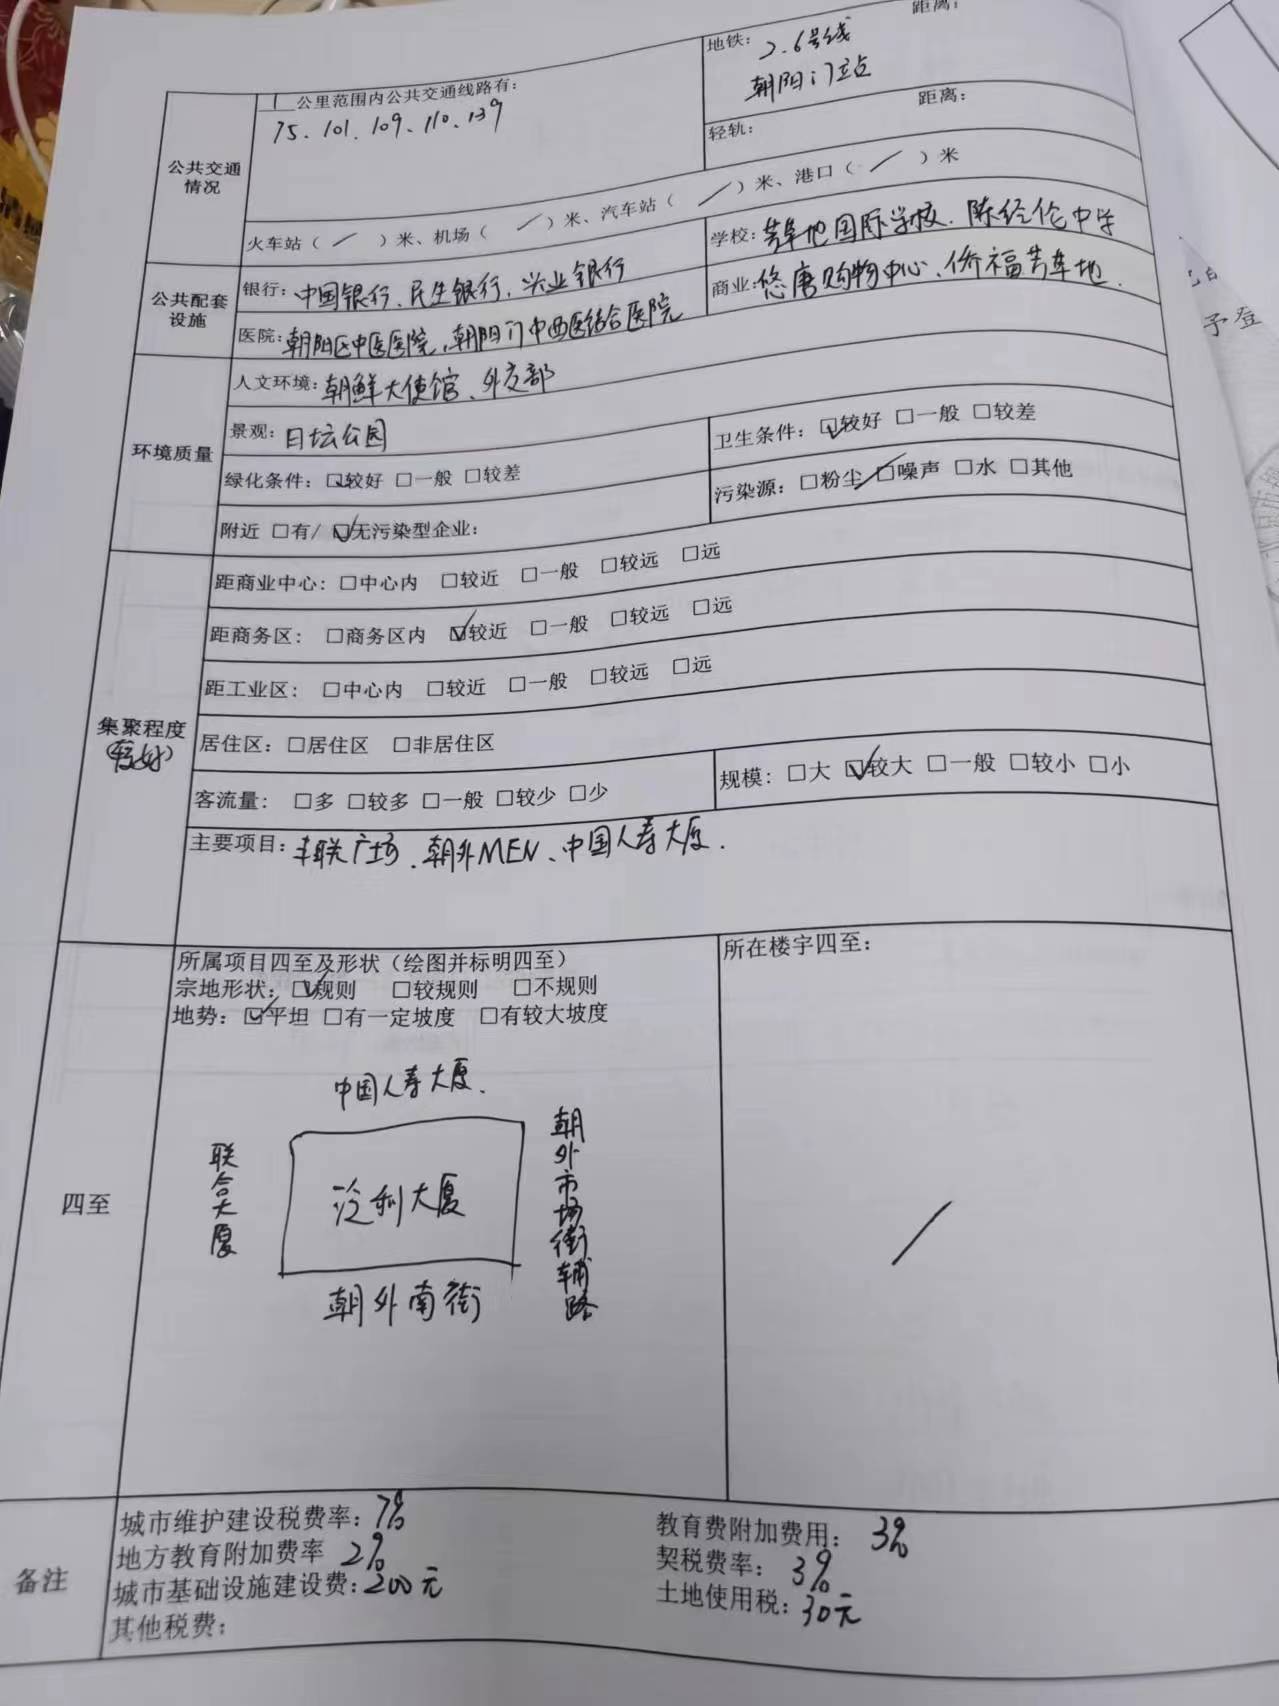 距离:
地铁: 2.6号线
朝阳门站
1 公里范围内公共交通线路有:
75、101、109、110、139
距离:
轻轨:
公共交通
情况
火车站( / )米、机场( / )米、汽车站( / )米、港口( / )米
公共配套
设施
银行: 中国银行、民生银行、兴业银行
学校: 芳草地国际学校、陈经伦中学
医院: 朝阳区中医医院、朝阳门中西医结合医院
商业: 悠唐购物中心、侨福芳草地.
环境质量
人文环境: 朝鲜大使馆、外交部
景观: 日坛公园
卫生条件: ☑较好 □一般 □较差
绿化条件: ☑较好 □一般 □较差
污染源: □粉尘 □噪声 □水 □其他
附近 □有/ ☑无污染型企业:
集聚程度
(较好)
距商业中心: □中心内 □较近 □一般 □较远 □远
距商务区: □商务区内 ☑较近 □一般 □较远 □远
距工业区: □中心内 □较近 □一般 □较远 □远
居住区: □居住区 □非居住区
客流量: □多 □较多 □一般 □较少 □少
规模: □大 ☑较大 □一般 □较小 □小
主要项目: 丰联广场、朝外MEN、中国人寿大厦.
四至
所属项目四至及形状(绘图并标明四至)
宗地形状: ☑规则 □较规则 □不规则
地势: ☑平坦 □有一定坡度 □有较大坡度
所在楼宇四至:
/
中国人寿大厦.
联合大厦
泛利大厦
朝外市场街辅路
朝外南街
备注
城市维护建设税费率: 7%
教育费附加费用: 3%
地方教育附加费率 2%
契税费率: 3%
城市基础设施建设费: 200元
土地使用税: 30元
其他税费:
予登